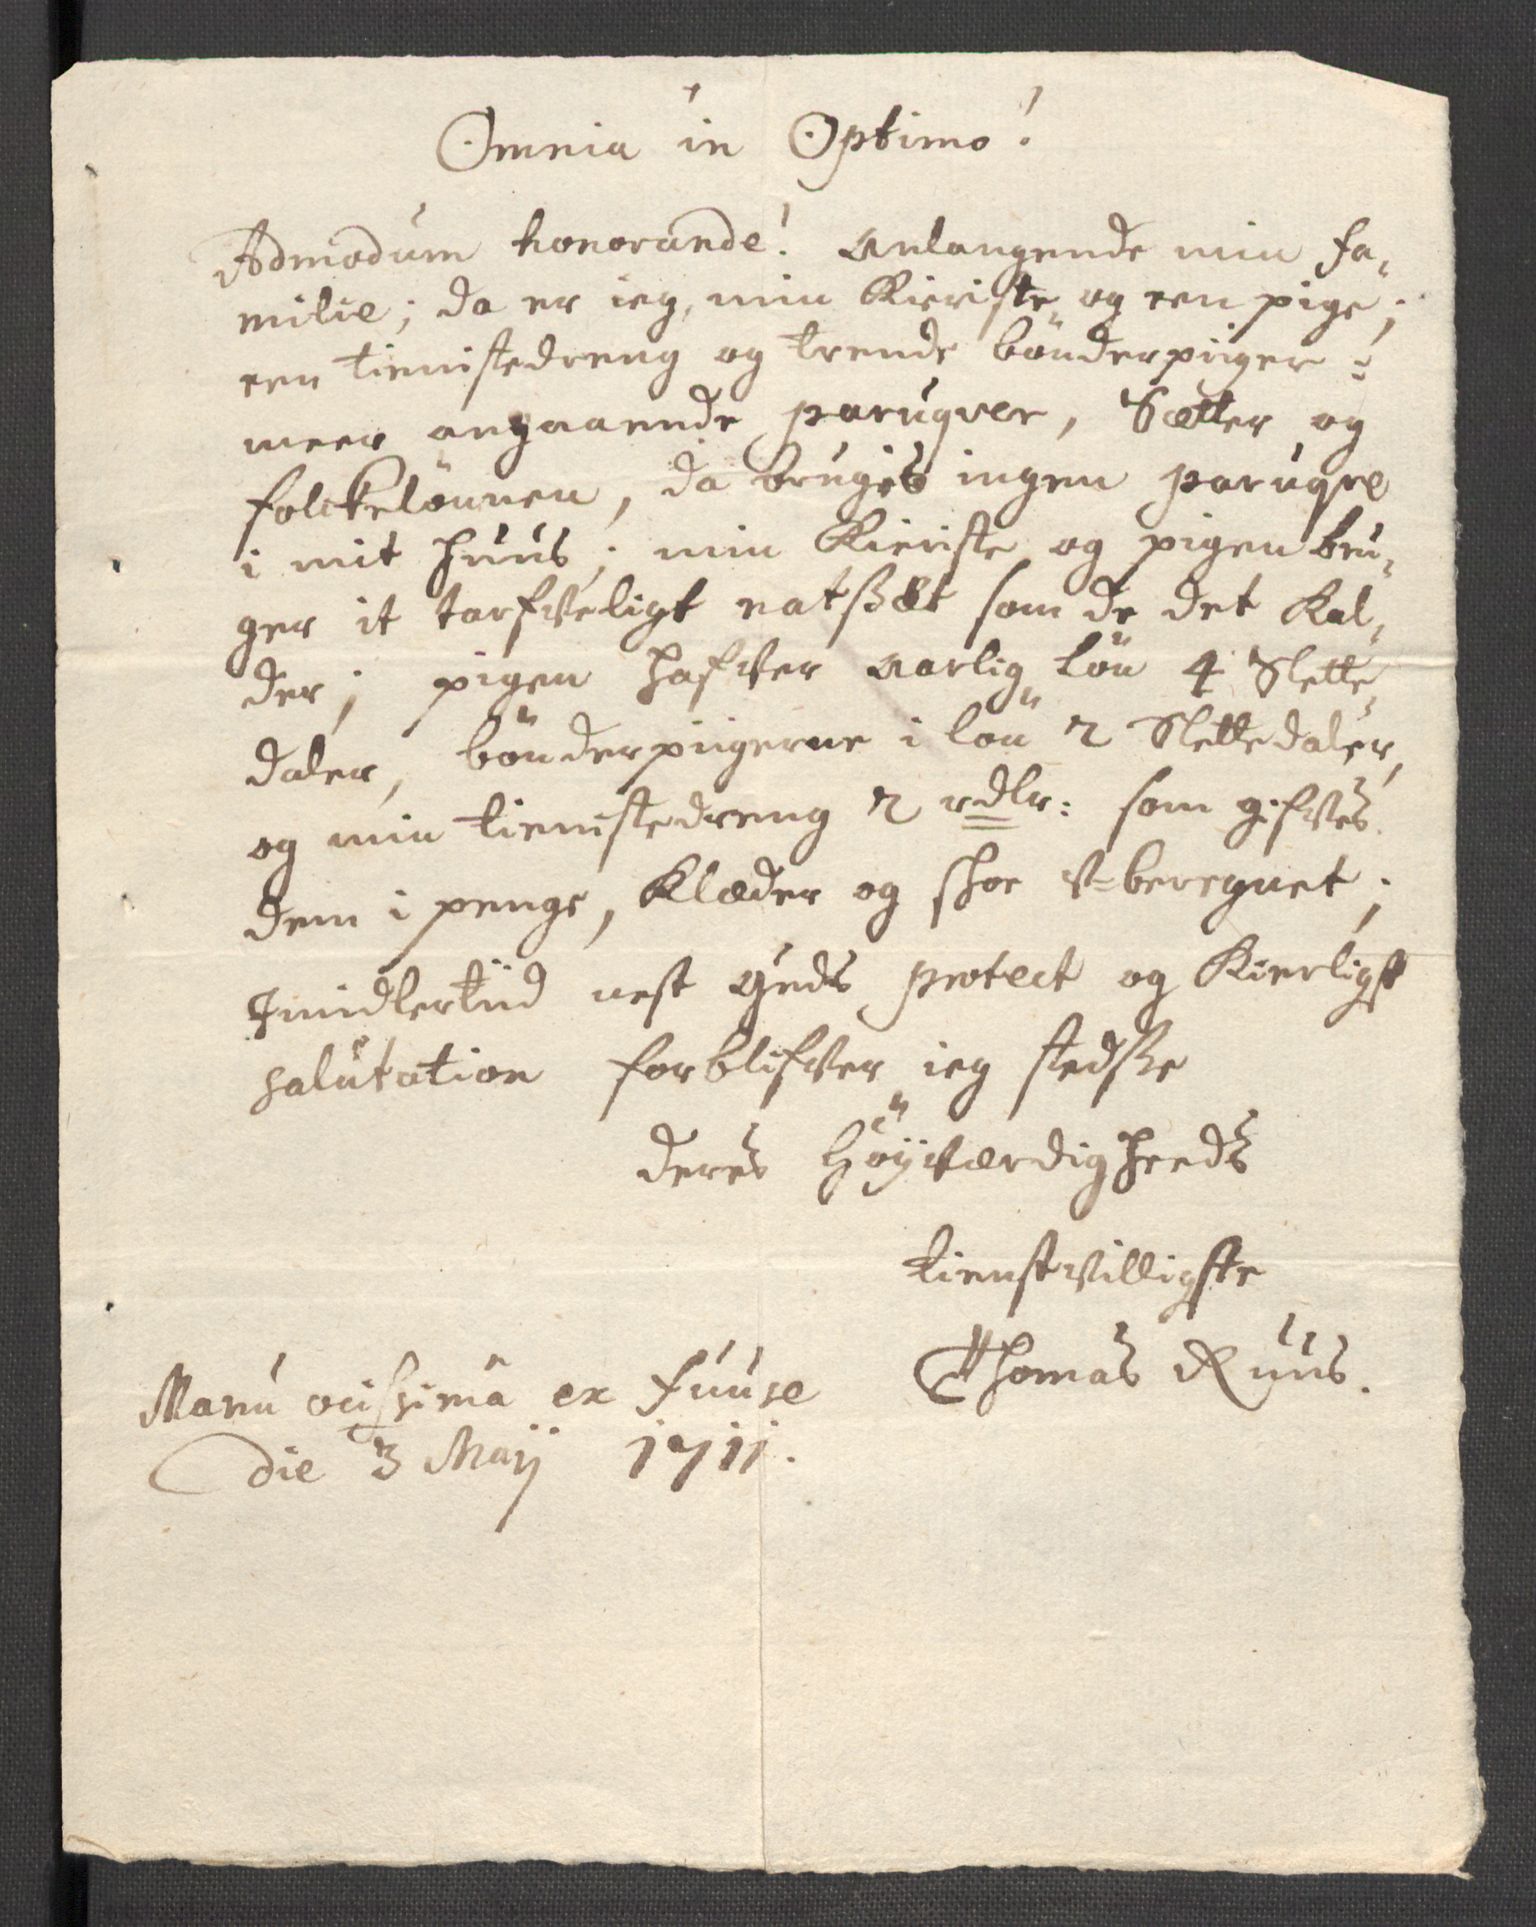 Omnia in Optimo!
Admodum honorande! Anlangende min fa-
milie; da er ieg, min Kieriste og een pige;
een tienistedreng og trende bönderpiiger:
meer angaaende paruqver, Sætter og
folckelönnen, da bruges ingen paruqve
i mit huus; min Kieriste og pigen bru-
ger it tarfveligt natsæt som de det kal-
der; pigen hafver aarlig lön 4 Slette-
daler, bönderpiigerne i lön 2 Slettedaler,
og min tienistedreng 2 rdlr: som gifves
dem i penge, Klæder og skoe v-beregnet;
Imidlertiid nest Guds protect og Kierligst
salutation forblifver ieg stedsse
deres Höyværdigheeds
tienstvilligste
Thomas Ruus.
Manu ocissima ex Fuuse
die 3 Maij 1711.